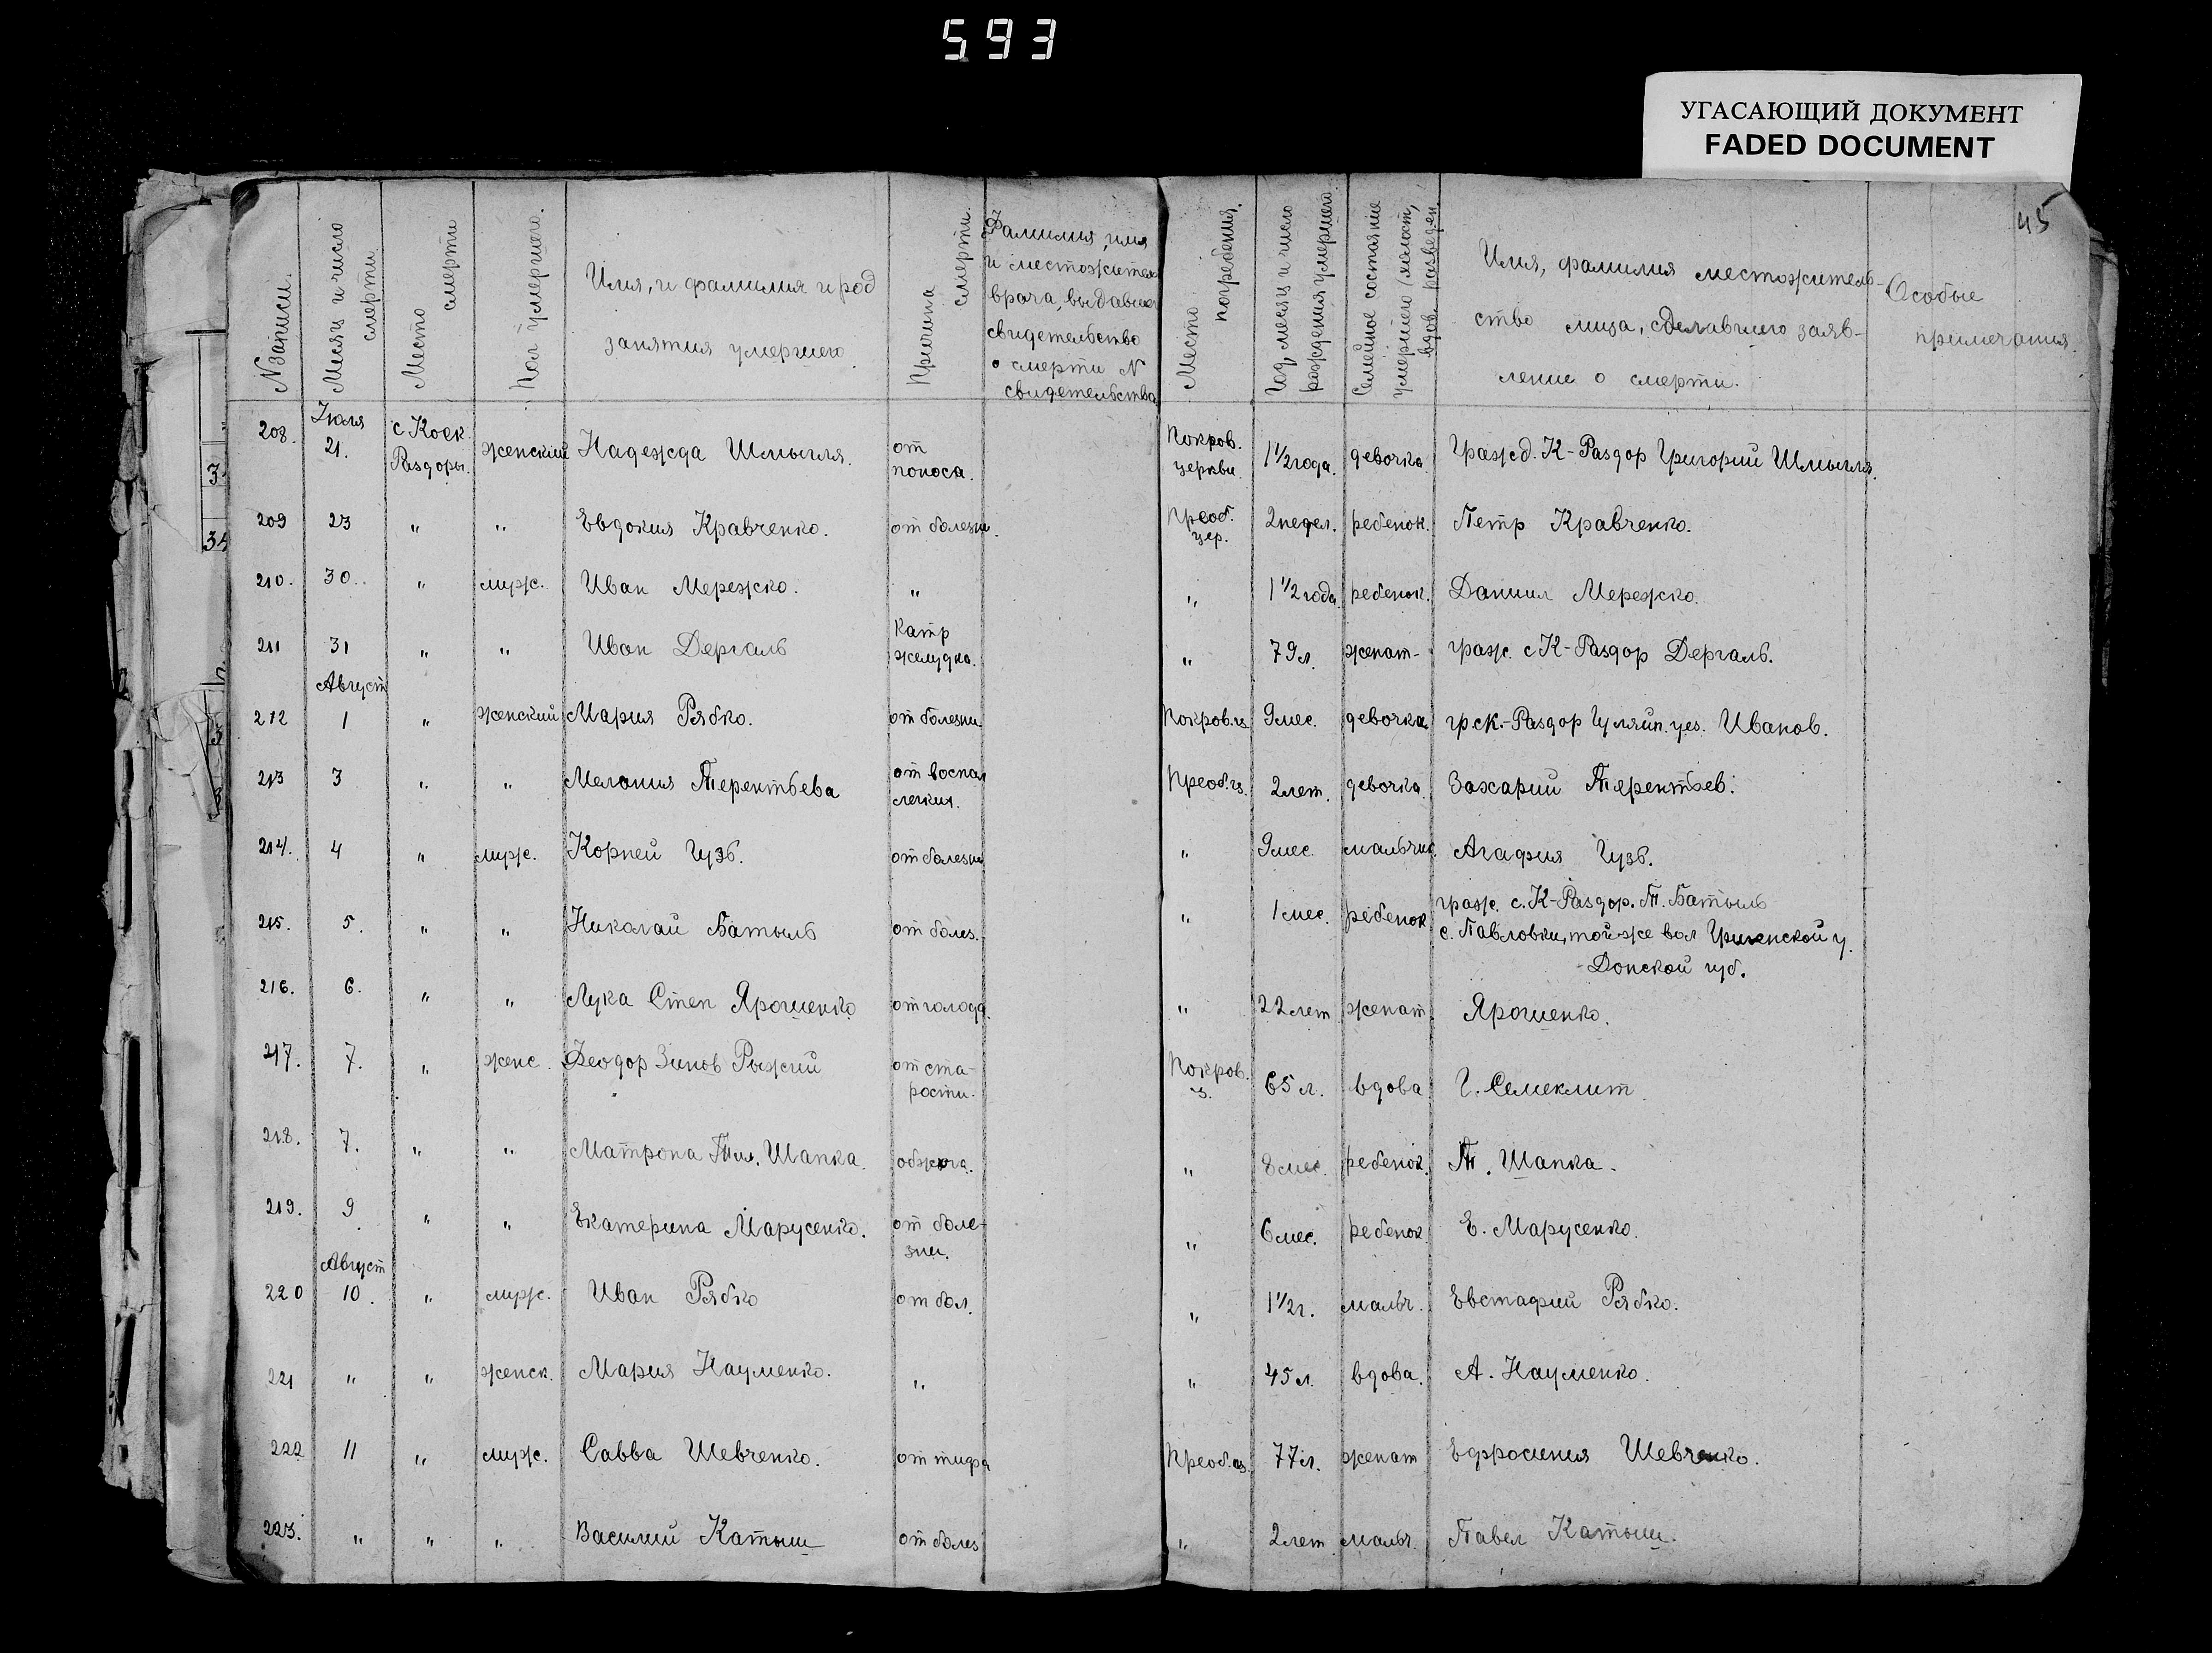 593
УГАСАЮЩИЙ ДОКУМЕНТ
FADED DOCUMENT
45
N Записи.
Месяц и число смерти.
Место смерти
Пол умершого.
Имя, и фамилия и род занятия умершего
Причина смерти.
Фамилия, имя и местожител врача, выдавшег свидетельство о смерти N свидетельства
Место погребения.
Год, месяц и число рождения умершего
Семейное состояние умершего (малолт, вдов. разведен.
Имя, фамилия местожитель-ство лица, сделавшего заяв-ление о смерти.
Особые примечания.
208. Июля 21. с Коск. Раздоры. женский Надежда Шмыгля. от поноса. Покров. церкви. 1 1/2 года. девочка Гражд. К-Раздор Григорий Шмыгля.
209 23 " " Евдокия Кравченко. от болезни. Преоб. цер. 2 недел. ребенок. Петр Кравченко.
210. 30. " муж. Иван Мережко. " " 1 1/2 года ребенок. Даниил Мережко.
211 31 " " Иван Дергаль Катр желудка. " 79 л. женат- граж. с К-Раздор Дергаль.
Август
212 1 " женский Мария Рябко. от болезни Покров. ц. 9 мес. девочка гр. с К.-Раздор Гуляйп. уез. Иванов.
213 3 " " Мелания Терентьева от воспал легких. Преоб. ц. 2 лет. девочка Захарий Терентьев.
214. 4 " муж. Корней Гузь. от болезни " 9 мес. мальчик. Агафия Гузь.
215. 5. " " Николай Батыль от болез. " 1 мес. ребенок граж. с. К-Раздор. Т. Батыль
с. Павловки, той-же вол Гришенской у.
Донской губ.
216. 6. " " Лука Степ Ярошенко от голода. " 22 лет женат. Ярошенко.
217. 7. " женс. Феодор Зинов Рыжий от ста-рости. Покров. ц. 65 л. вдова Г. Семеклит
218. 7. " " Матрона Тим. Шапка. обжога. " 8 мес. ребенок. Т. Шапка.
219. 9 " " Екатерина Марусенко. от боле-зни. " 6 мес. ребенок Е. Марусенко.
Август
220 10. " муж. Иван Рябко от бол. " 1 1/2 г. мальч. Евстафий Рябко.
221 " " женск. Мария Науменко. " " 45 л. вдова. А. Науменко.
222 11 " муж. Савва Шевченко. от тифа Преоб. ц. 77 л. женат Ефросиния Шевченко.
223. " " " Василий Катыш от болез " 2 лет мальч. Павел Катыш.